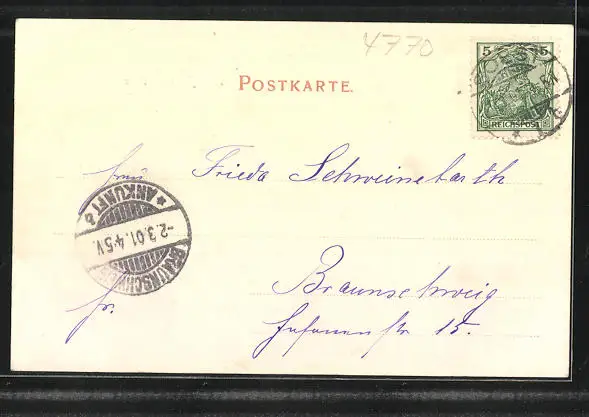 4770
5 5
REICHSPOST
POSTKARTE.
Frieda Schweinebarth
ANKUNFT b
-2.3.01.4-5V.
BRAUNSCHWEIG
fr.
Braunschweig
str. 15.